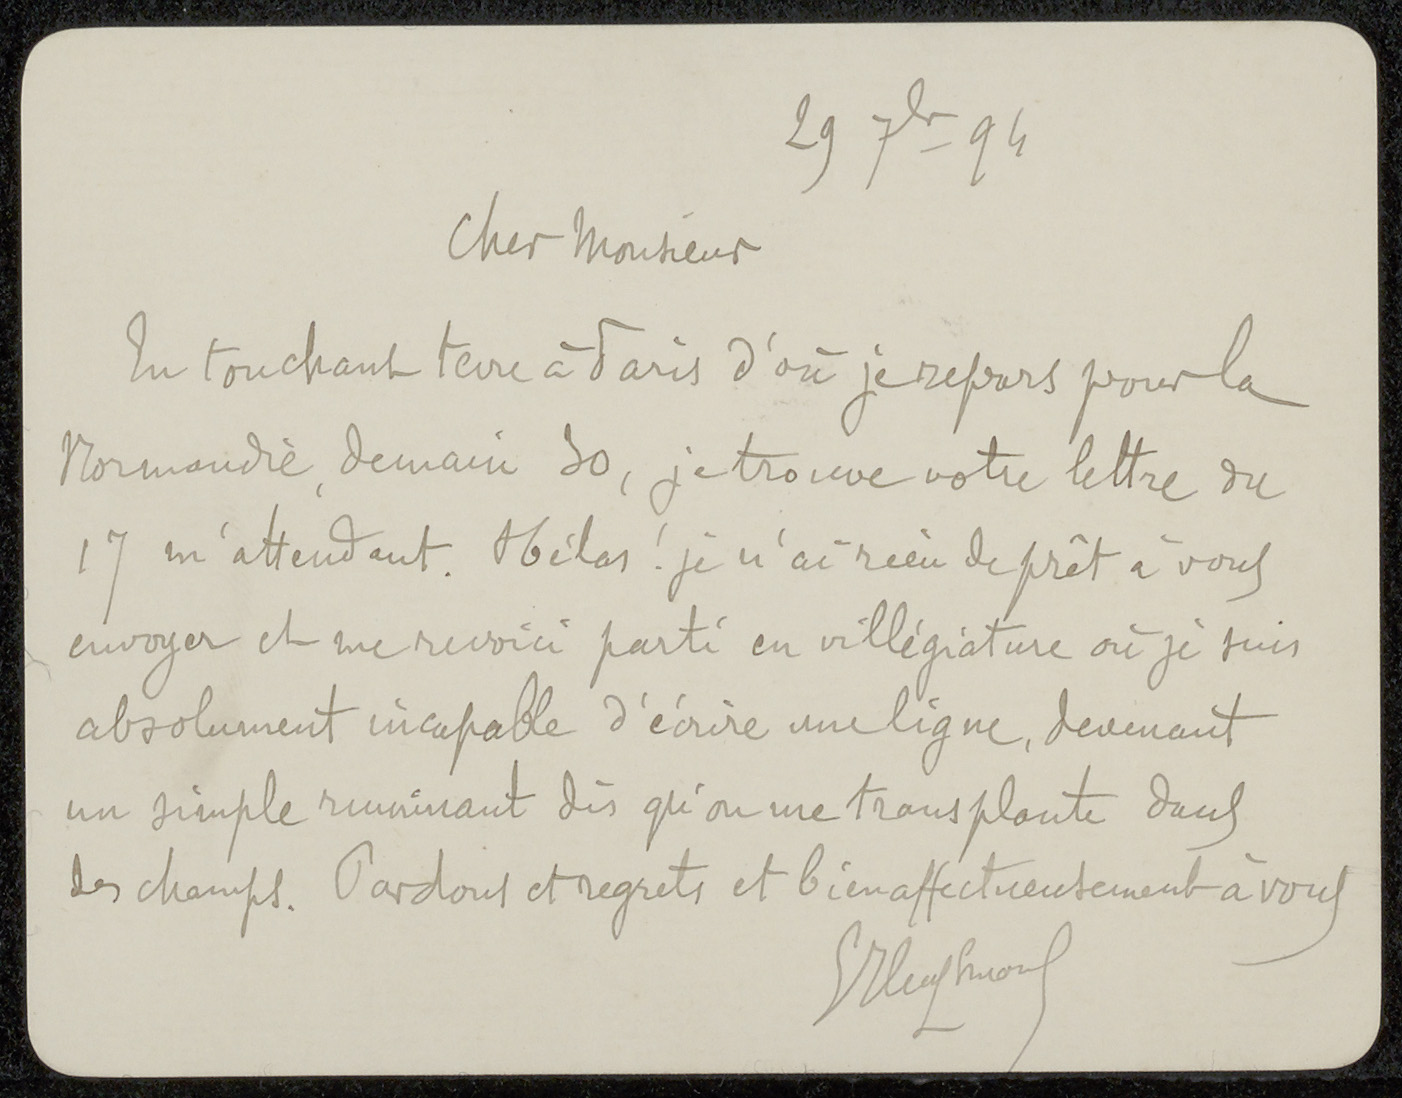 29 7br 94
Cher Monsieur
En touchant terre à Paris d'où je repars pour la
Normandie, demain 30, je trouve votre lettre du
17 m'attendant. Hélas! je n'ai rien de prêt à vous
envoyer et me revoici parti en villégiature où je suis
absolument incapable d'écrire une ligne, devenant
un simple ruminant dès qu'on me transplante dans
des champs. Pardons et regrets et bien affectueusement à vous